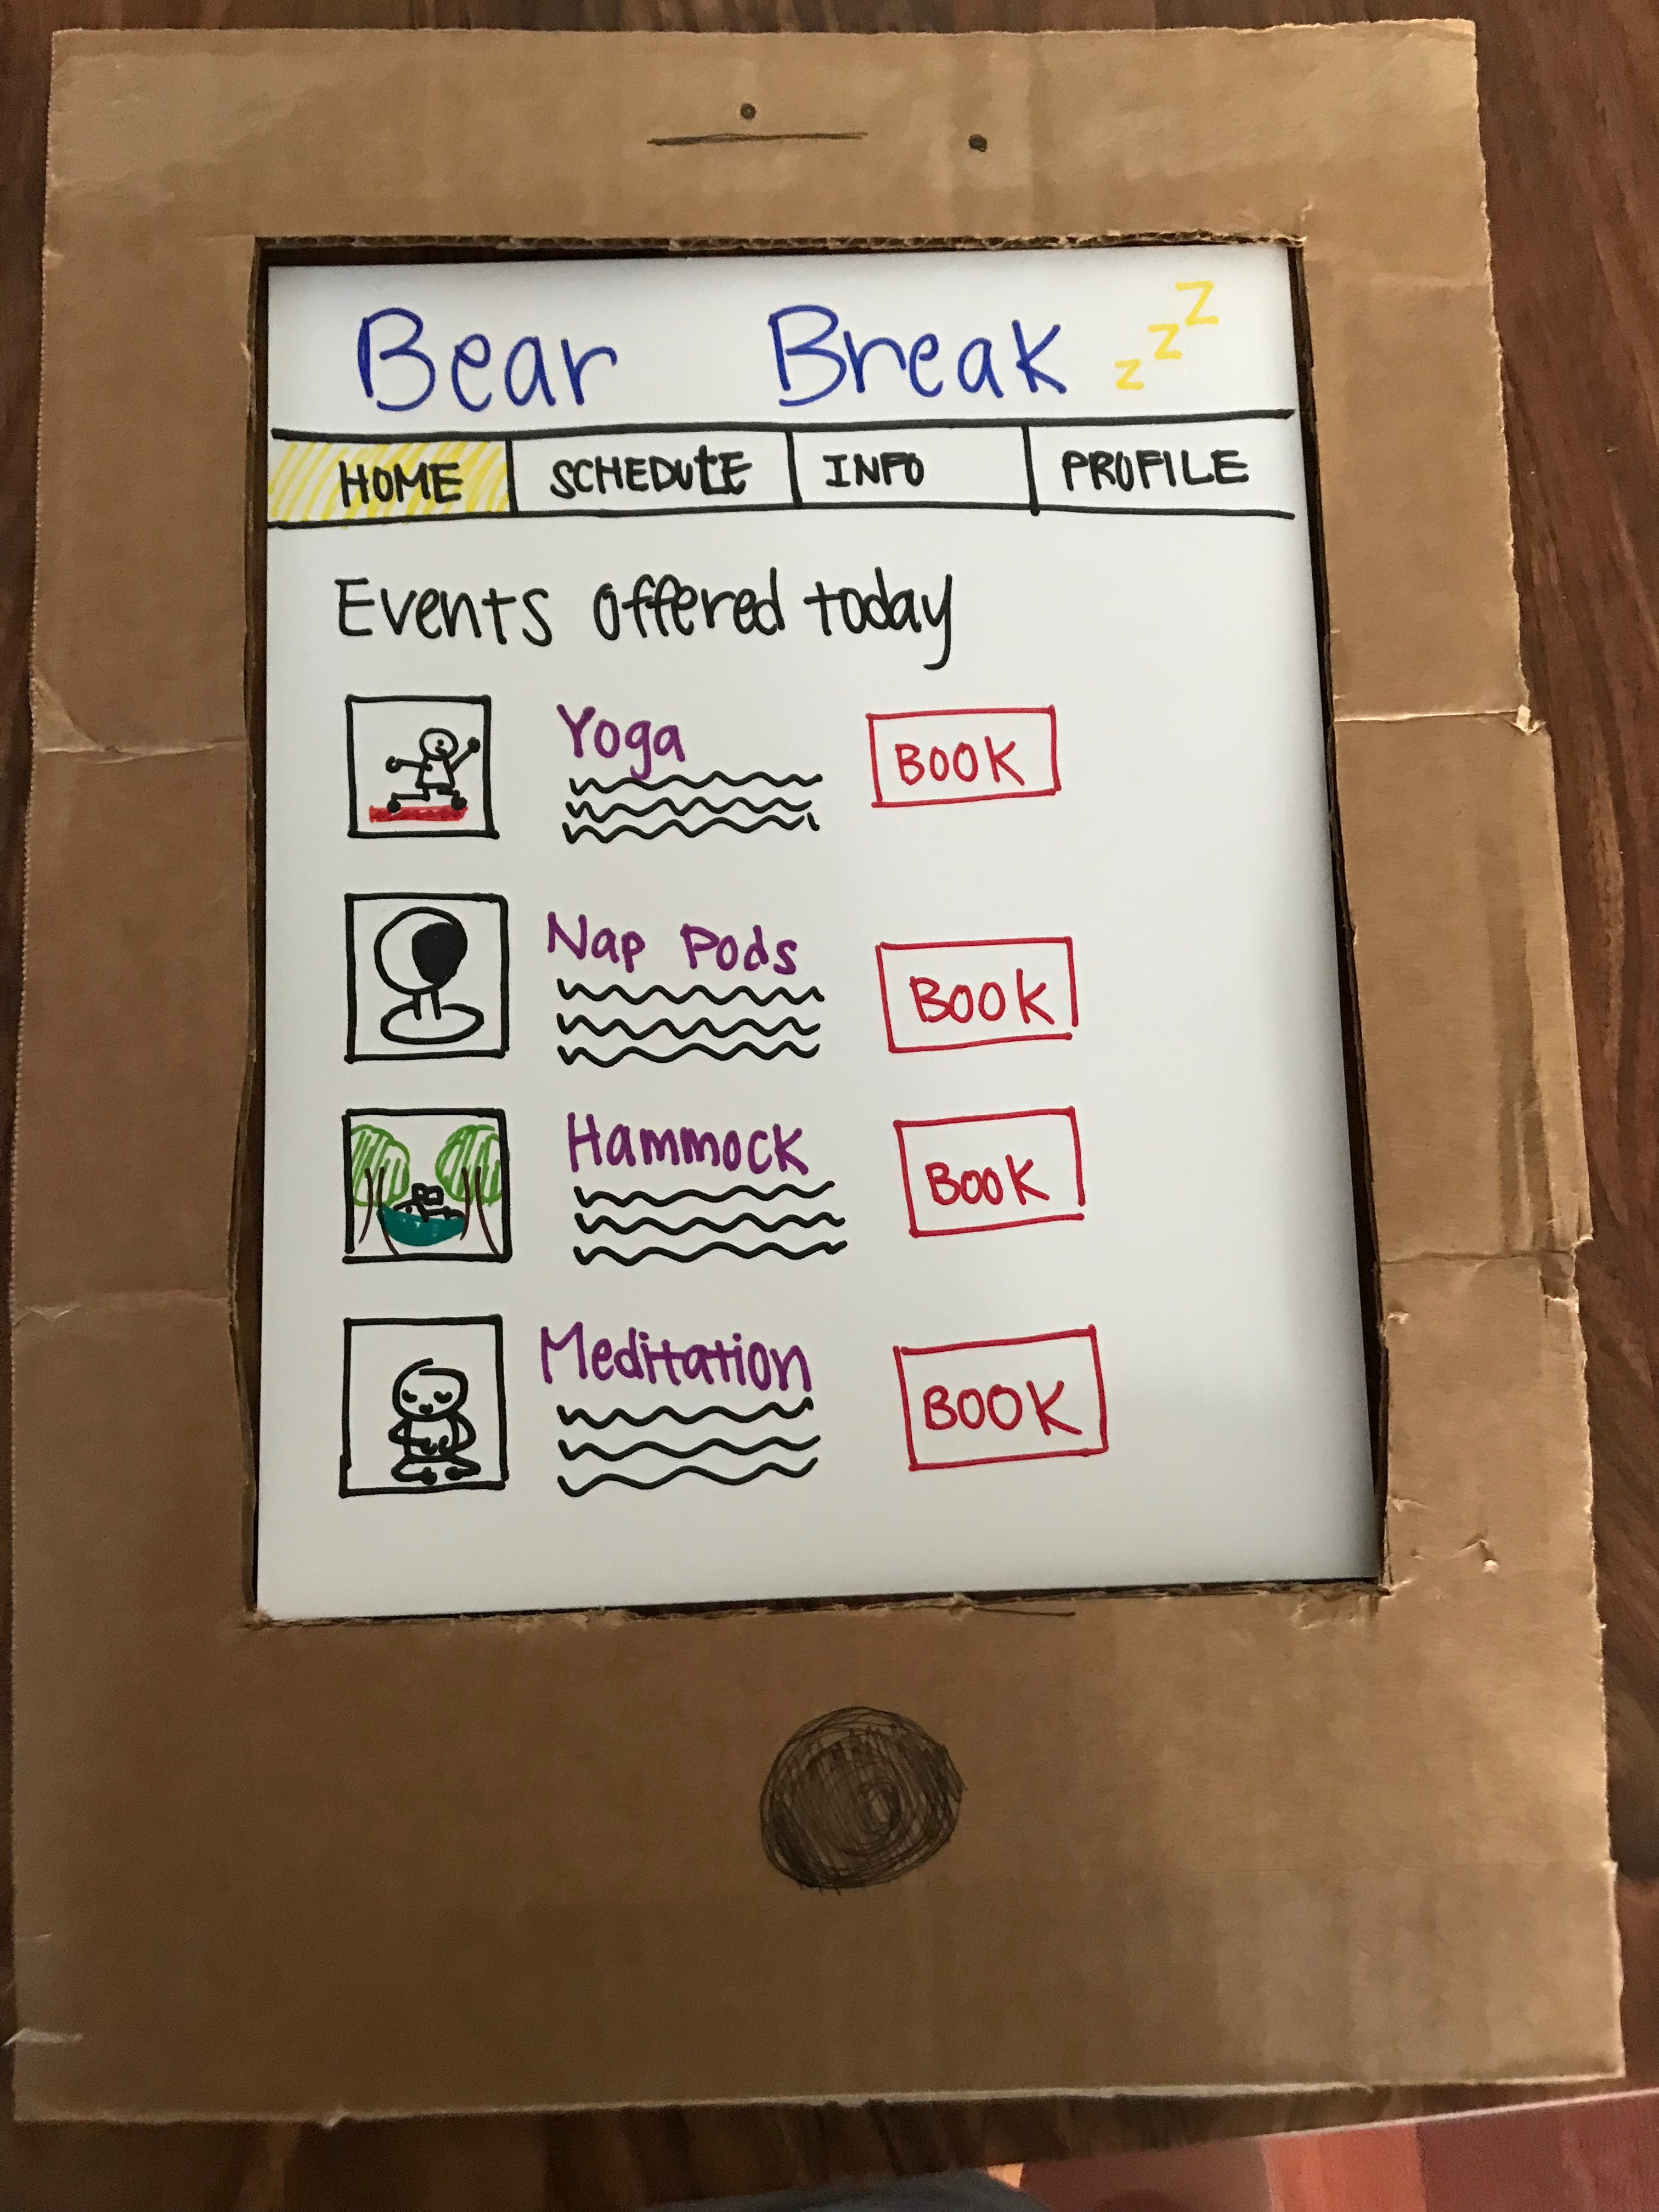 Bear Break zzz
HOME SCHEDULE INFO PROFILE
Events offered today
Yoga BOOK
Nap Pods BOOK
Hammock BOOK
Meditation BOOK